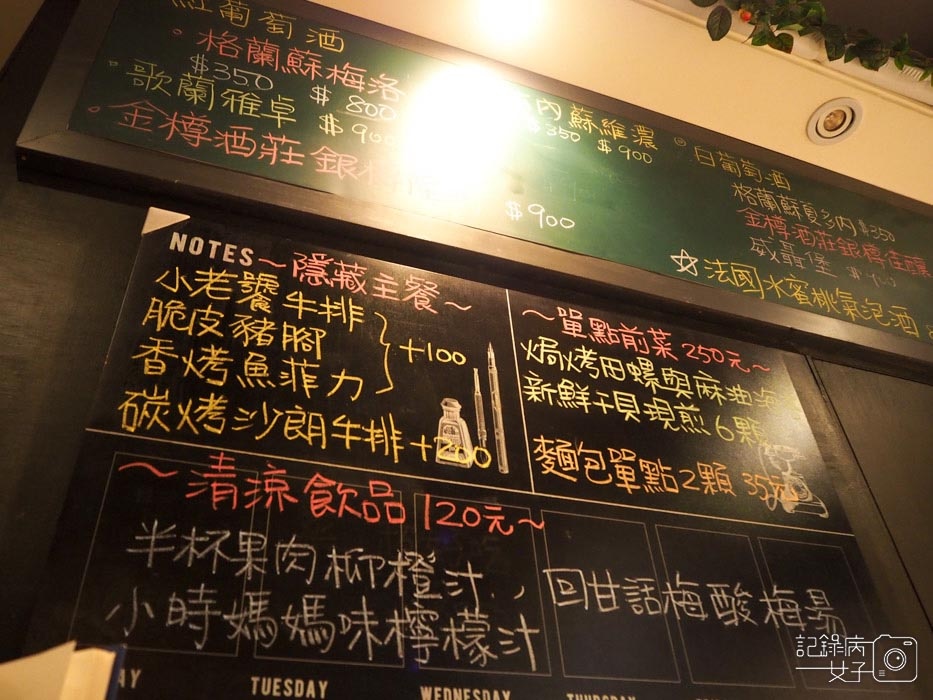 紅葡萄酒
。格蘭蘇梅洛
$350 $800
。歌蘭雅卓 $900
。金樽酒莊 銀
內蘇維濃
$350 $900
$900
◎白葡萄酒
格蘭蘇夏多內 $350
金樽酒莊銀樽佳釀
威聶堡
☆法國水蜜桃氣泡酒
NOTES ～隱藏主餐～
小老饕牛排
脆皮豬腳
香烤魚菲力
+100
碳烤沙朗牛排 +200
～單點前菜 250元～
焗烤田螺與麻油
新鮮干貝現煎6顆
麵包單點2顆 35元
～清涼飲品 120元～
半杯果肉柳橙汁、
小時媽媽味檸檬汁
回甘話梅酸梅湯
AY
TUESDAY
WEDNESDAY
THURSDAY
記錄病
女子